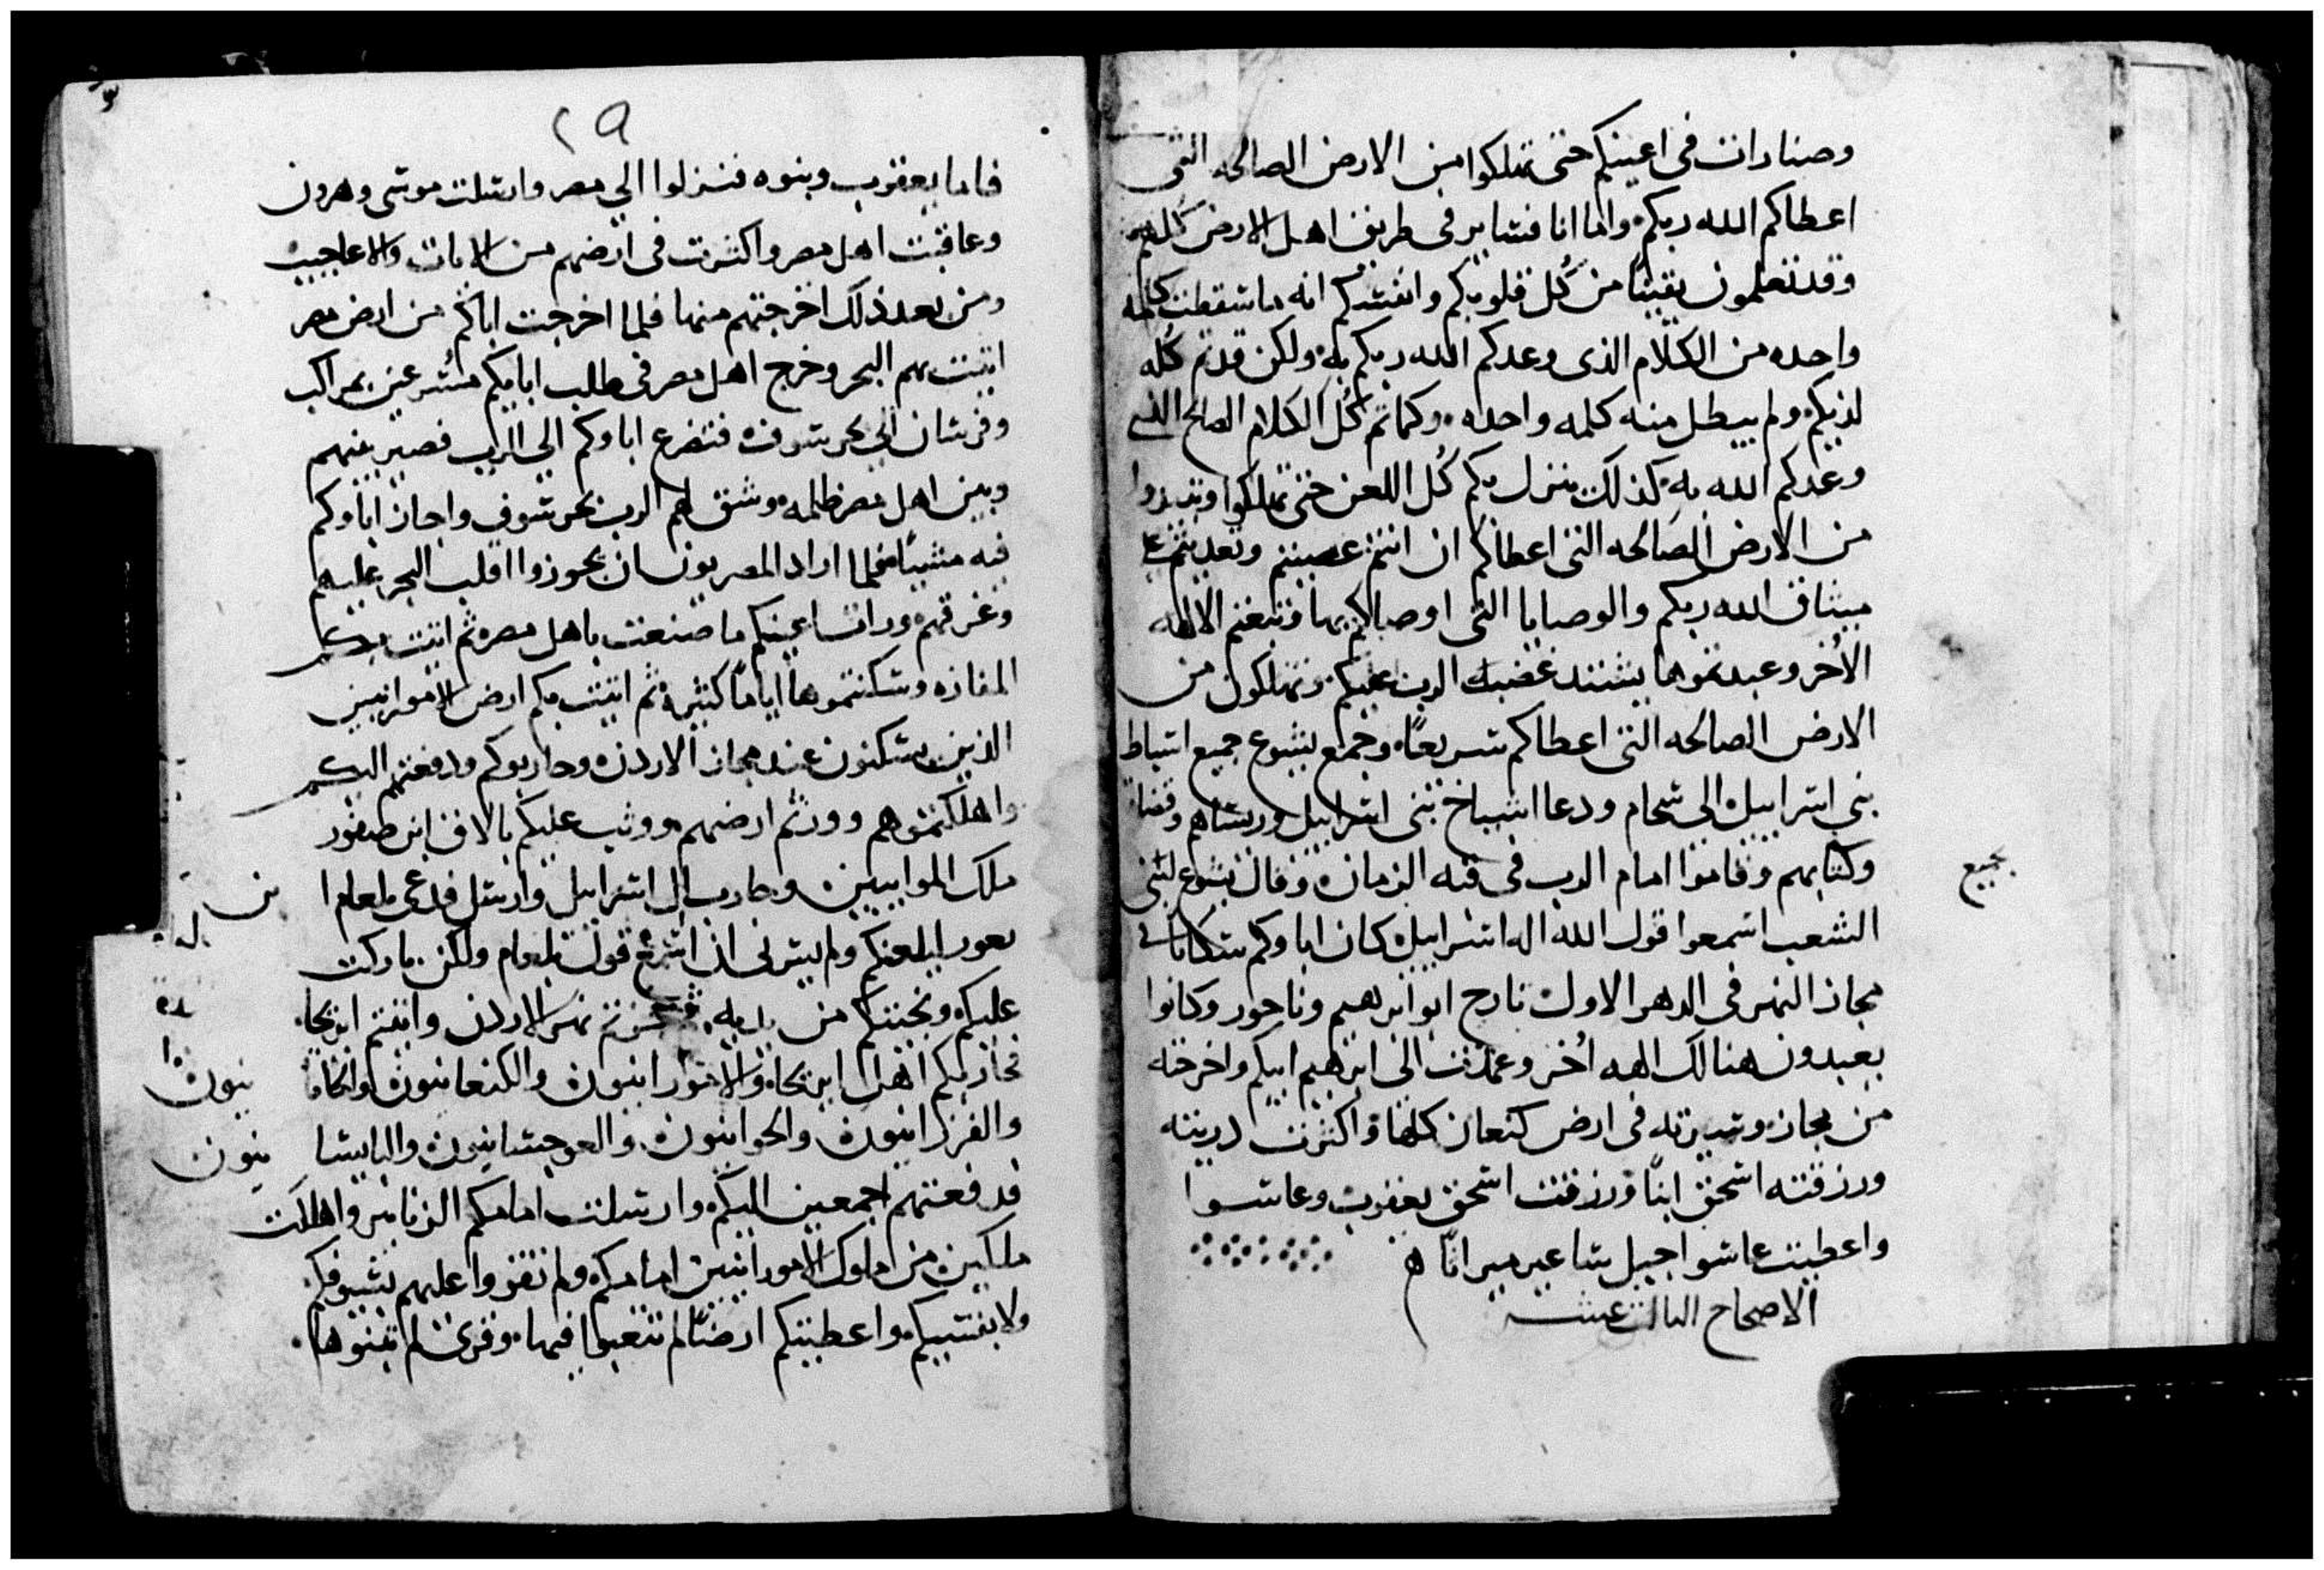 وصنارات في اعينكم حتى تهلكوا من الارض الصالحه التي
اعطاكم الله ربكم واما انا فساير في طريق اهل الارض كلهم
وقد تعلمون يقينًا من كُل قلوبكم وانفسكم انه ما سقطت كلمه
واحده من الكلام الذي وعدكم الله ربكم به ولكن قد تم كُله
لديكم ولم يبطل منه كلمه واحده وكما تم كُل الكلام الصالح الذي
وعدكم الله به كذلك ينزل بكم كُل اللعن حتى تهلكوا وتبيدوا
من الارض الصالحه التي اعطاكم ان انتم عصيتم وتعديتم على
ميثاق الله ربكم والوصايا التي اوصاكم بها وتبعتم الالهه
الاُخر وعبدتموها يشتد غضب الرب عليكم وتهلكون من
الارض الصالحه التي اعطاكم سريعًا وجمع يشوع جميع اسباط
بني اسراييل الى شحام ودعا اشياخ بني اسراييل وريساهم وقضاه
وكتابهم وقاموا امام الرب في قبه الزمان وقال يشوع لبني
جميع
الشعب اسمعوا قول الله اله اسراييل كان اباوكم سكانا في
مجاز النهر في الدهر الاول تارح ابو ابرهيم وناحور وكانوا
يعبدون هنالك الهه اُخر وعمدت الى ابرهيم ابيكم واخرجته
من مجاز وسيرته في ارض كنعان كلها واكثرت دريته
ورزقته اسحق ابنًا ورزقت اسحق يعقوب وعاسوا
واعطيت عاسوا جبل ساعير ميراثًا ه
الاصحاح الثالث عشر
٢٩
فاما يعقوب وبنوه فنزلوا الي مصر وارسلت موسى وهرون
وعاقبت اهل مصر واكثرت في ارضهم من الايات والاعاجيب
ومن بعد ذلك اخرجتهم منها فلما اخرجت اباكم من ارض مصر
اتيت بهم البحر وخرج اهل مصر في طلب ابايكم مُسرعين بمراكب
وفرسان الي بحر سوف فتضرع اباوكم الي الرب فصير بينهم
وبين اهل مصر ظلمه وشق لهم الرب بحر سوف واجاز اباوكم
فيه مشيًا فلما اراد المصريون ان يجوزوا اقلب البحر عليهم
وغرقهم ورات اعينكم ما صنعت باهل مصر ثم اتيت بكم
المفازه وسكنتموها ايامًا كثيره ثم اتيت بكم ارض الامورانيين
الذين يسكنون عند مجاز الاردن وحاربوكم ودفعتهم اليكم
واهلكتموهم وورثتم ارضهم ووثب عليكم بالاق ابن صفور
ملك الموابيين وحارب ال اسراييل وارسل فدعى بلعام ابن
بعور ليلعنكم ولم يسرني ان اسمع قول بلعام ولكن باركت
عليكم ونجيتكم من يديه فجزتم نهر الاردن واتيتم اريحا
فحاربكم اهل اريحا والامورانيون والكنعانيون والحاثا نيون
والفرزانيون والحوانيون والعرجسانيون واليابسا نيون
فدفعتهم اجمعين اليكم وارسلت امامكم الزنابير واهلكت
ملكين من ملوك الامورانيين امامكم ولم تقووا عليهم بسيوفكم
ولا بقسيكم واعطيتكم ارضًا لم تتعبوا فيها وقرى لم تبنوها